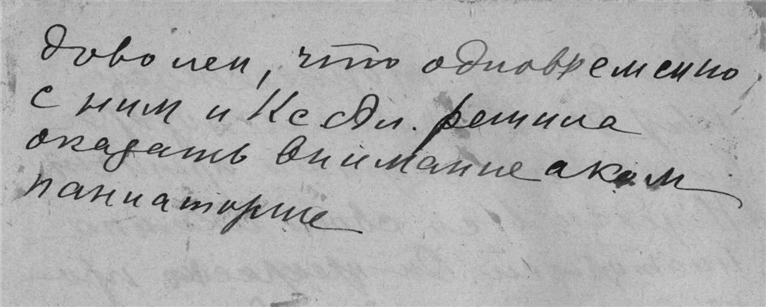 доволен, что одновременно
с ним и Кс Ал. решила
оказать внимание аком
паниаторше